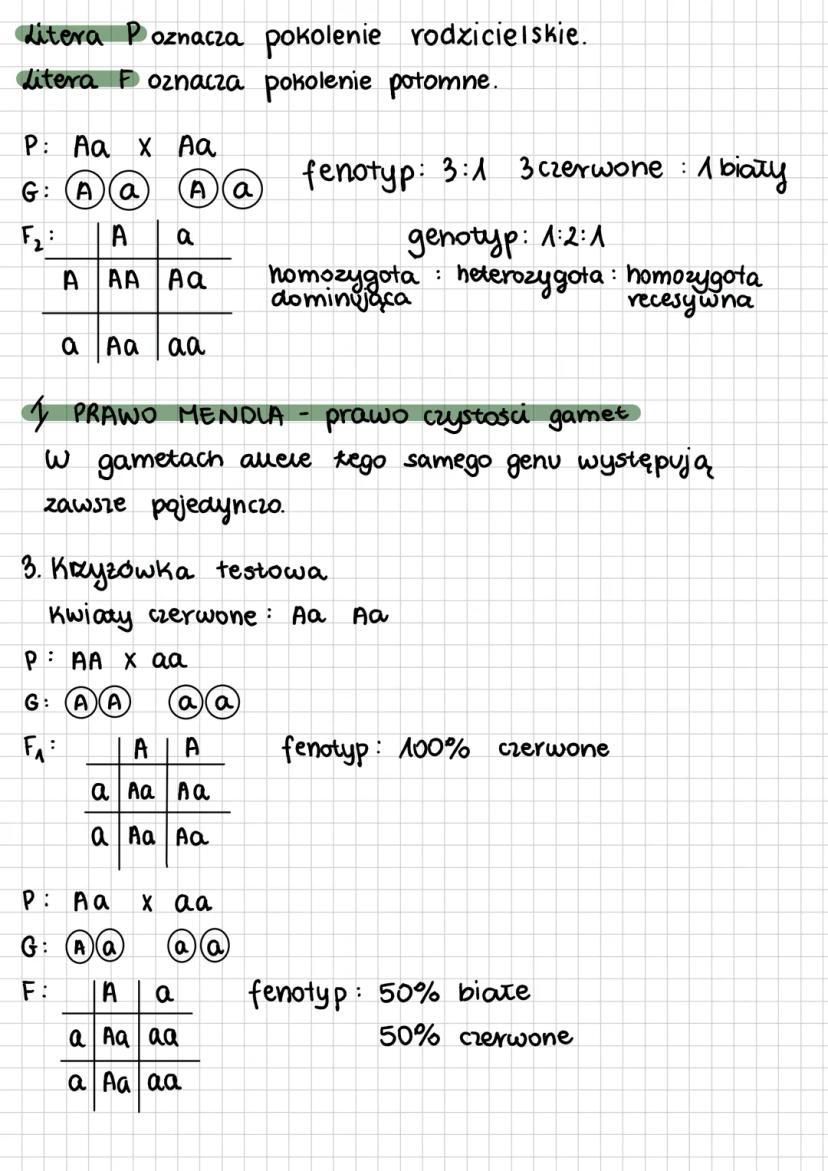 Litera P oznacza pokolenie rodzicielskie.
Litera F oznacza pokolenie potomne.
P: Aa x Aa
G: A a A a
fenotyp: 3:1 3 czerwone : 1 biały
F₂: A a
A AA Aa
a Aa aa
genotyp: 1:2:1
homozygota : heterozygota : homozygota
dominująca recesywna
1) PRAWO MENDLA - prawo czystości gamet
W gametach allele tego samego genu występują
zawsze pojedynczo.
3. Krzyżówka testowa
Kwiaty czerwone: Aa Aa
P: AA x aa
G: A A a a
F₁: A A
a Aa Aa
a Aa Aa
fenotyp: 100% czerwone
P: Aa x aa
G: A a a a
F: A a
a Aa aa
a Aa aa
fenotyp: 50% białe
50% czerwone